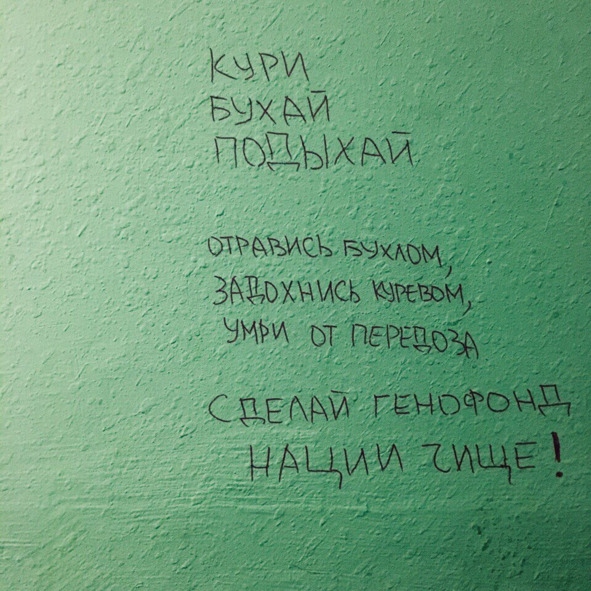 КУРИ
БУХАЙ
ПОДЫХАЙ
ОТРАВИСЬ БУХЛОМ,
ЗАДОХНИСЬ КУРЕВОМ,
УМРИ ОТ ПЕРЕДОЗА
СДЕЛАЙ ГЕНОФОНД
НАЦИИ ЧИЩЕ!